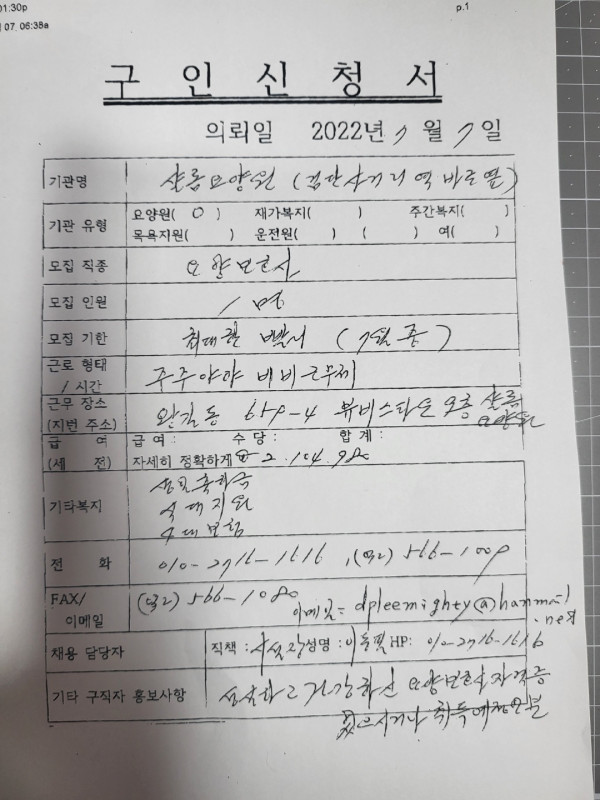 01:30p
07. 06:38a
p.1
구 인 신 청 서
의뢰일 2022년 7월 7일
기관명 샬롬요양원 (검단사거리역 바로옆)
기관 유형 요양원( O ) 재가복지( ) 주간복지( )
목욕지원( ) 운전원( ) ( ) 여( )
모집 직종 요양보호사
모집 인원 1명
모집 기한 최대한 빨리 (7월 중)
근로 형태 / 시간 주주야야 비비근무제
근무 장소 (지번 주소) 왕길동 659-4 뷰비스타운 9층 샬롬요양원
급 여 (세 전) 급여: 수당: 합계:
자세히 정확하게 2.104.980
기타복지
생일축하금
식대지원
4대보험
전 화 010-2716-1616, (032) 566-1009
FAX/이메일 (032) 566-1080
이메일= dpleemighty@hanmail.net
채용 담당자 직책: 시설장 성명: 이동필 HP: 010-2716-1616
기타 구직자 홍보사항 성실하고 건강하신 요양보호사자격증
있으시거나 취득예정인분